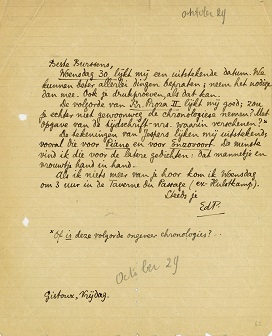 october 29
Beste Burssens,
Woensdag 30, lijkt mij een uitstekende datum. We
kunnen beter allerlei dingen bepraten; neem het noodige
dan mee. Ook je drukproeven, als dat kan.
De volgorde van Br. Proza II lijkt mij goed; zou
je echter niet gewoonweg de chronologies nemen? Met
opgave van de tijdschrift-nrs. waarin verschenen?*
De tekeningen van Jespers lijken mij uitstekend,
vooral die voor Piano en voor Enzovoort. De minste
vind ik die voor de latere gedichten: dat mannetje en
vrouwtje hand in hand.
Als ik niets meer van je hoor kom ik Woensdag
om 3 uur in de Taverne du Passage (ex-Hulstkamp).
Steeds je
EdP.
* Of is deze volgorde ongeveer chronologies?...
october 29
Gistoux, Vrijdag.